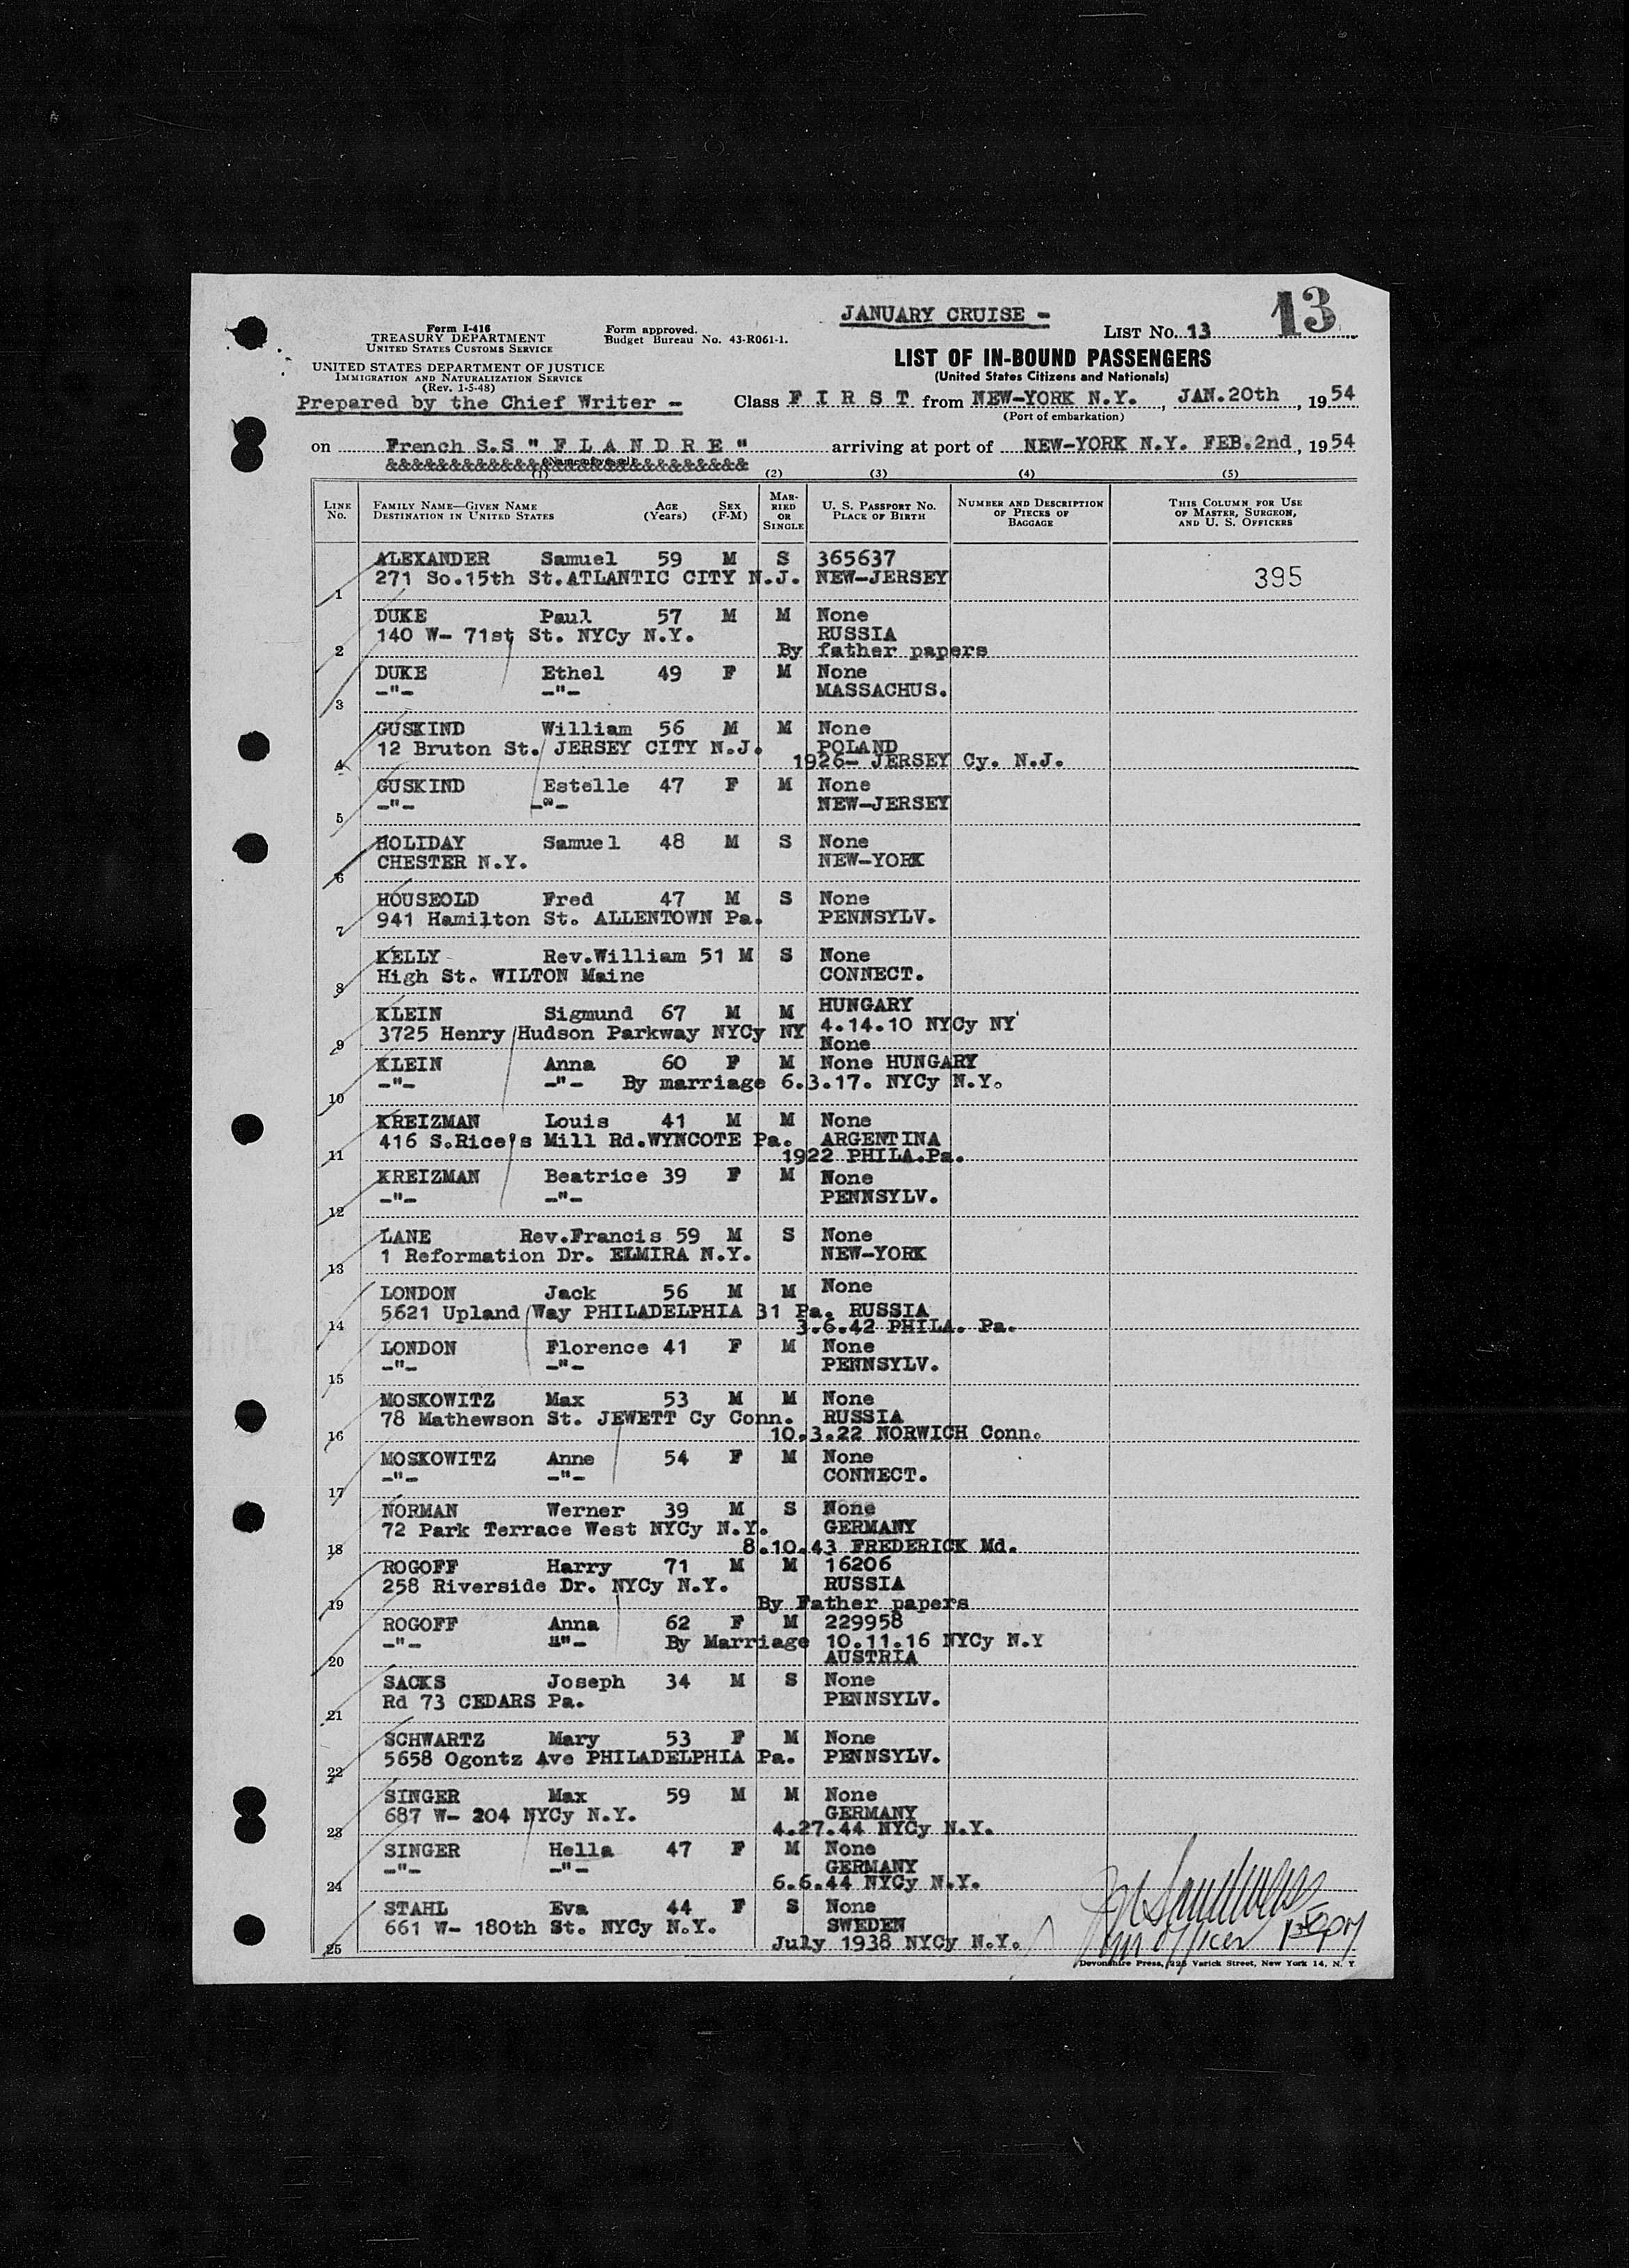 JANUARY CRUISE -
13
Form I-416
TREASURY DEPARTMENT
UNITED STATES CUSTOMS SERVICE
Form approved.
Budget Bureau No. 43-R061-1.
LIST No. 13
UNITED STATES DEPARTMENT OF JUSTICE
IMMIGRATION AND NATURALIZATION SERVICE
(Rev. 1-5-48)
LIST OF IN-BOUND PASSENGERS
(United States Citizens and Nationals)
Prepared by the Chief Writer -
Class F I R S T from NEW-YORK N.Y., JAN.20th, 1954
(Port of embarkation)
on French S.S " F L A N D R E " arriving at port of NEW-YORK N.Y. FEB.2nd, 1954
(1) (2) (3) (4) (5)
LINE No.
FAMILY NAME—GIVEN NAME DESTINATION IN UNITED STATES
AGE (Years)
SEX (F-M)
MARRIED OR SINGLE
U. S. PASSPORT No. PLACE OF BIRTH
NUMBER AND DESCRIPTION OF PIECES OF BAGGAGE
THIS COLUMN FOR USE OF MASTER, SURGEON, AND U. S. OFFICERS
ALEXANDER Samuel 59 M S 365637
271 So.15th St.ATLANTIC CITY N.J. NEW-JERSEY 395
1
DUKE Paul 57 M M None
140 W- 71st St. NYCy N.Y. RUSSIA
2 By father papers
DUKE Ethel 49 F M None
-"- -"- MASSACHUS.
3
GUSKIND William 56 M M None
12 Bruton St. JERSEY CITY N.J. POLAND
4 1926- JERSEY Cy. N.J.
GUSKIND Estelle 47 F M None
-"- -"- NEW-JERSEY
5
HOLIDAY Samuel 48 M S None
CHESTER N.Y. NEW-YORK
6
HOUSEOLD Fred 47 M S None
941 Hamilton St. ALLENTOWN Pa. PENNSYLV.
7
KELLY Rev.William 51 M S None
High St. WILTON Maine CONNECT.
8
HUNGARY
KLEIN Sigmund 67 M M 4.14.10 NYCy NY
3725 Henry Hudson Parkway NYCy NY
9 None
KLEIN Anna 60 F M None HUNGARY
-"- -"- By marriage 6.3.17. NYCy N.Y.
10
KREIZMAN Louis 41 M M None
416 S.Rice's Mill Rd.WYNCOTE Pa. ARGENTINA
11 1922 PHILA.Pa.
KREIZMAN Beatrice 39 F M None
-"- -"- PENNSYLV.
12
LANE Rev.Francis 59 M S None
1 Reformation Dr. ELMIRA N.Y. NEW-YORK
13
LONDON Jack 56 M M None
5621 Upland Way PHILADELPHIA 31 Pa. RUSSIA
14 3.6.42 PHILA. Pa.
LONDON Florence 41 F M None
-"- -"- PENNSYLV.
15
MOSKOWITZ Max 53 M M None
78 Mathewson St. JEWETT Cy Conn. RUSSIA
16 10.3.22 NORWICH Conn.
MOSKOWITZ Anne 54 F M None
-"- -"- CONNECT.
17
NORMAN Werner 39 M S None
72 Park Terrace West NYCy N.Y. GERMANY
18 8.10.43 FREDERICK Md.
ROGOFF Harry 71 M M 16206
258 Riverside Dr. NYCy N.Y. RUSSIA
19 By Father papers
ROGOFF Anna 62 F M 229958
-"- -"- By Marriage 10.11.16 NYCy N.Y
20 AUSTRIA
SACKS Joseph 34 M S None
Rd 73 CEDARS Pa. PENNSYLV.
21
SCHWARTZ Mary 53 F M None
5658 Ogontz Ave PHILADELPHIA Pa. PENNSYLV.
22
SINGER Max 59 M M None
687 W- 204 NYCy N.Y. GERMANY
23 4.27.44 NYCy N.Y.
SINGER Hella 47 F M None
-"- -"- GERMANY
24 6.6.44 NYCy N.Y.
STAHL Eva 44 F S None
661 W- 180th St. NYCy N.Y. SWEDEN
25 July 1938 NYCy N.Y.
Devonshire Press, 225 Varick Street, New York 14, N. Y.